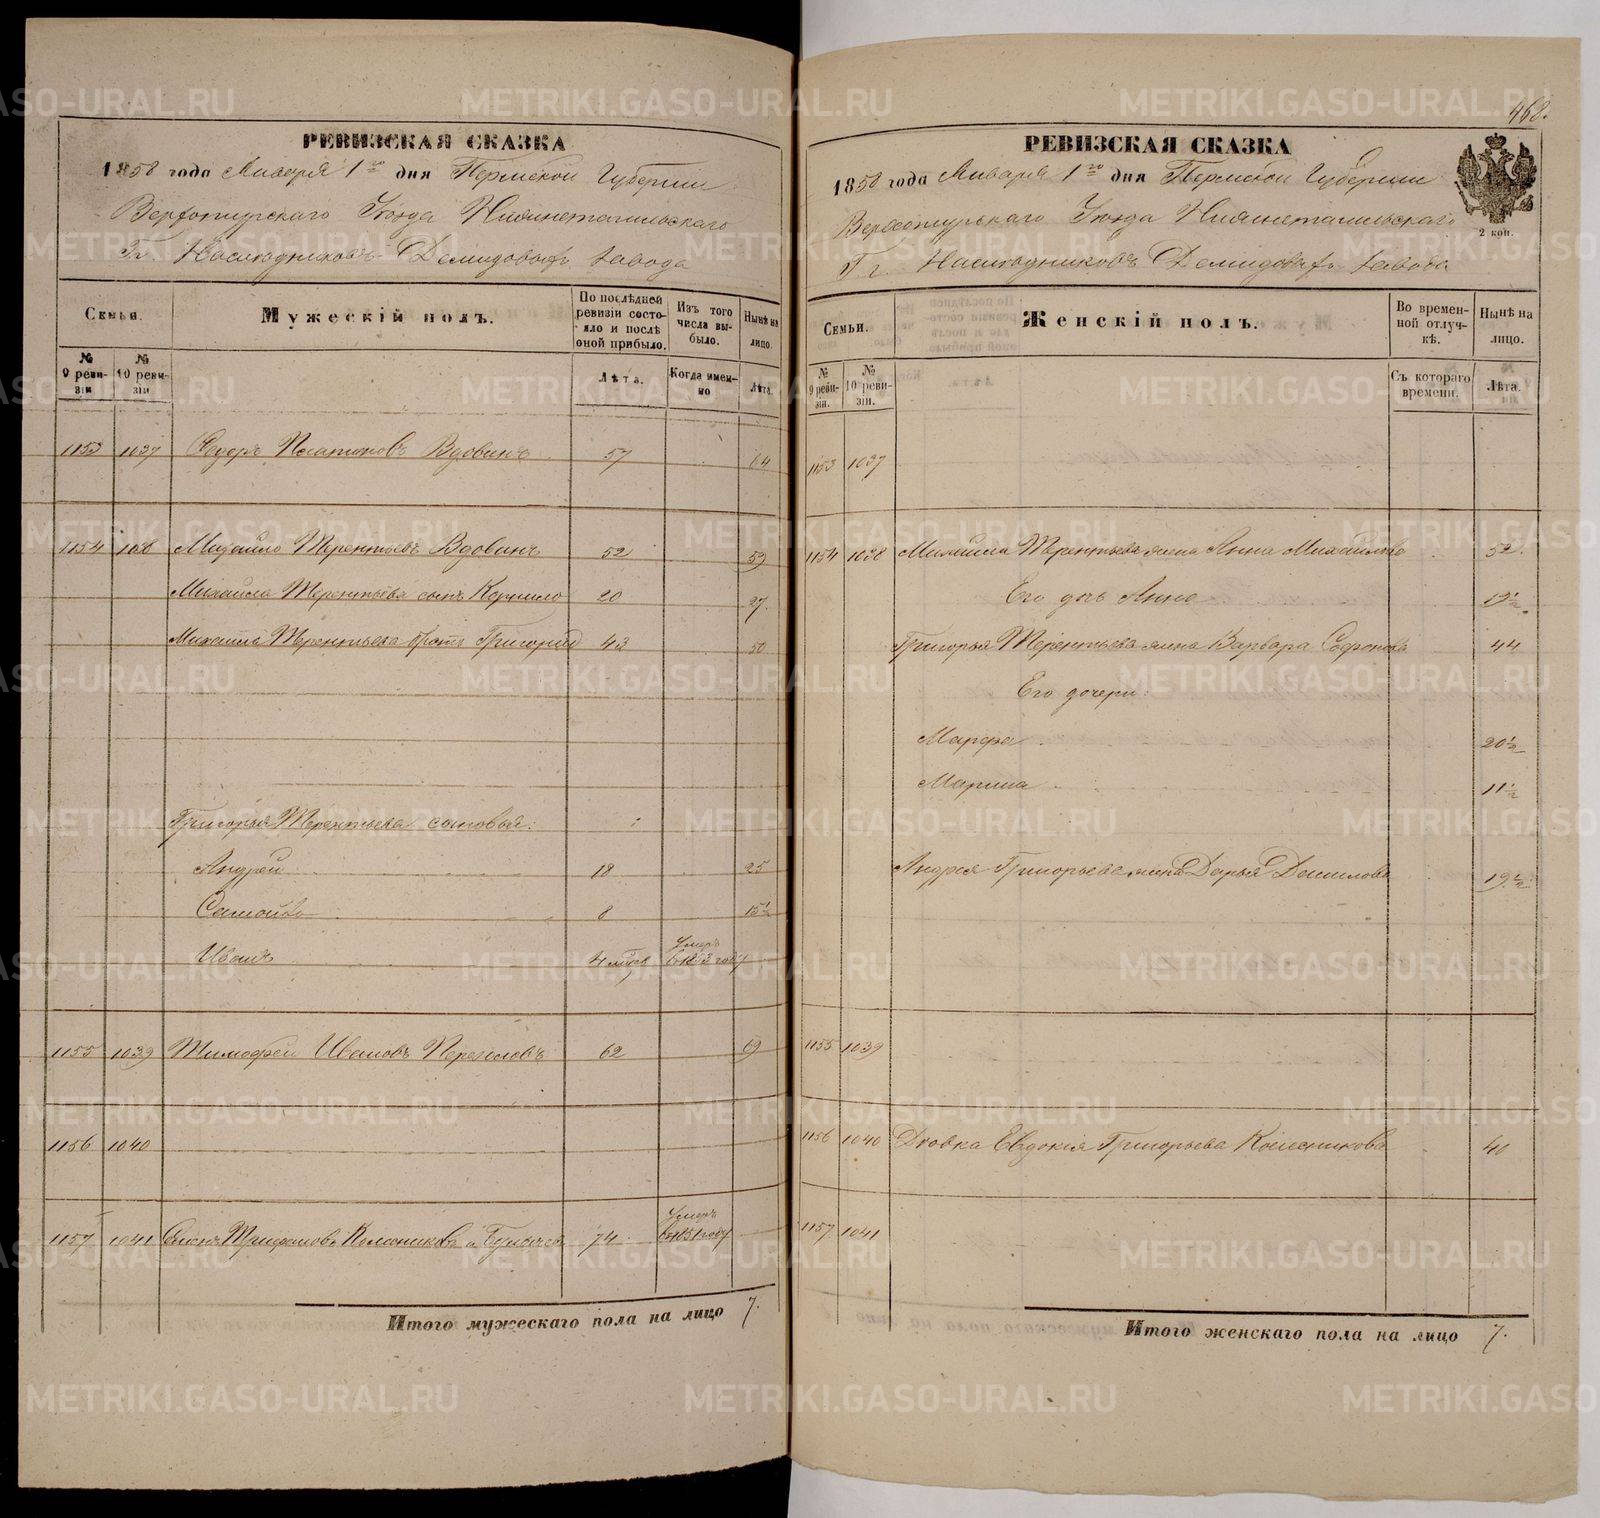 РЕВИЗСКАЯ СКАЗКА
1858 года Января 1го дня Пермской Губернии
Верхотурскаго Уѣзда Нижнетагильскаго
Гг. Наслѣдниковъ Демидовыхъ завода
Семьи.
Мужескій полъ.
По послѣдней ревизіи состояло и послѣ оной прибыло.
Изъ того числа выбыло.
Нынѣ на лицо.
№ 9 ревизіи
№ 10 ревизіи
Лѣта.
Когда именно
Лѣта.
1153 1037 Федоръ Платоновъ Вдовинъ 57 64
1154 1038 Михайло Терентьевъ Вдовинъ 52 59
Михаила Терентьева сынъ Корнило 20 27.
Михаила Терентьева братъ Григорій 43 50
Григорья Терентьева сыновья:
Андрей 18 25
Самойло 8 15½
Иванъ 4 мѣсяц. Умеръ въ 1853 году
1155 1039 Тимофей Ивановъ 62 69
1156 1040
1157 1041 Трифановъ Колесниковъ и 74 Умеръ въ 1851 году
Итого мужескаго пола на лицо 7.
468.
РЕВИЗСКАЯ СКАЗКА
1858 года Января 1го дня Пермской Губерніи
Верхотурскаго Уѣзда Нижнетагильскаго
Гг. Наслѣдниковъ Демидовыхъ завода
2 коп.
Семьи.
Женскій полъ.
Во временной отлучкѣ.
Нынѣ на лицо.
№ 9 ревизіи.
№ 10 ревизіи.
Съ котораго времени.
Лѣта.
1153 1037
1154 1038 Михайла Терентьева жена Анна Михайлова 52.
Его дочь Анна 19½.
Григорья Терентьева жена Варвара Софронова 44
Его дочери:
Марфа 20½
Марина 11½
Андрея Григорьева жена Дарья Данилова 19½
1155 1039
1156 1040 Дѣвка Евдокія Григорьева Колесникова 40
1157 1041
Итого женскаго пола на лицо 7.
METRIKI.GASO-URAL.RU